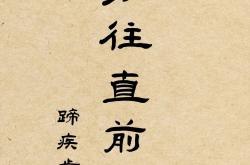 往直前
蹄疾